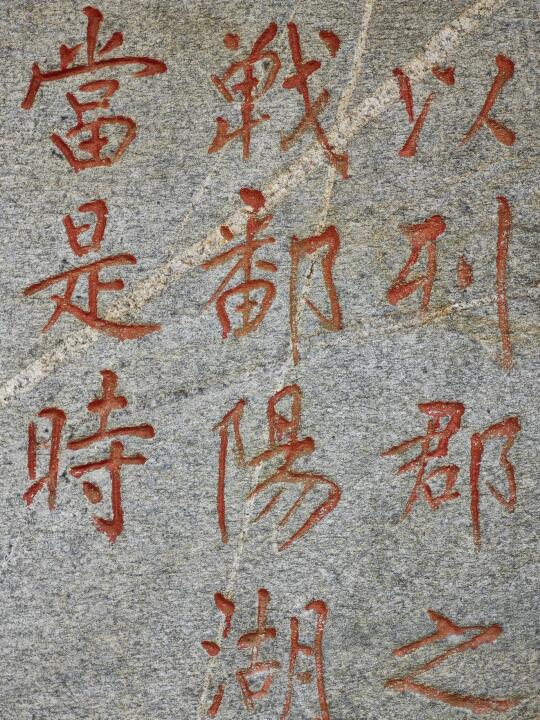 以列郡之
戰鄱陽湖
當是時